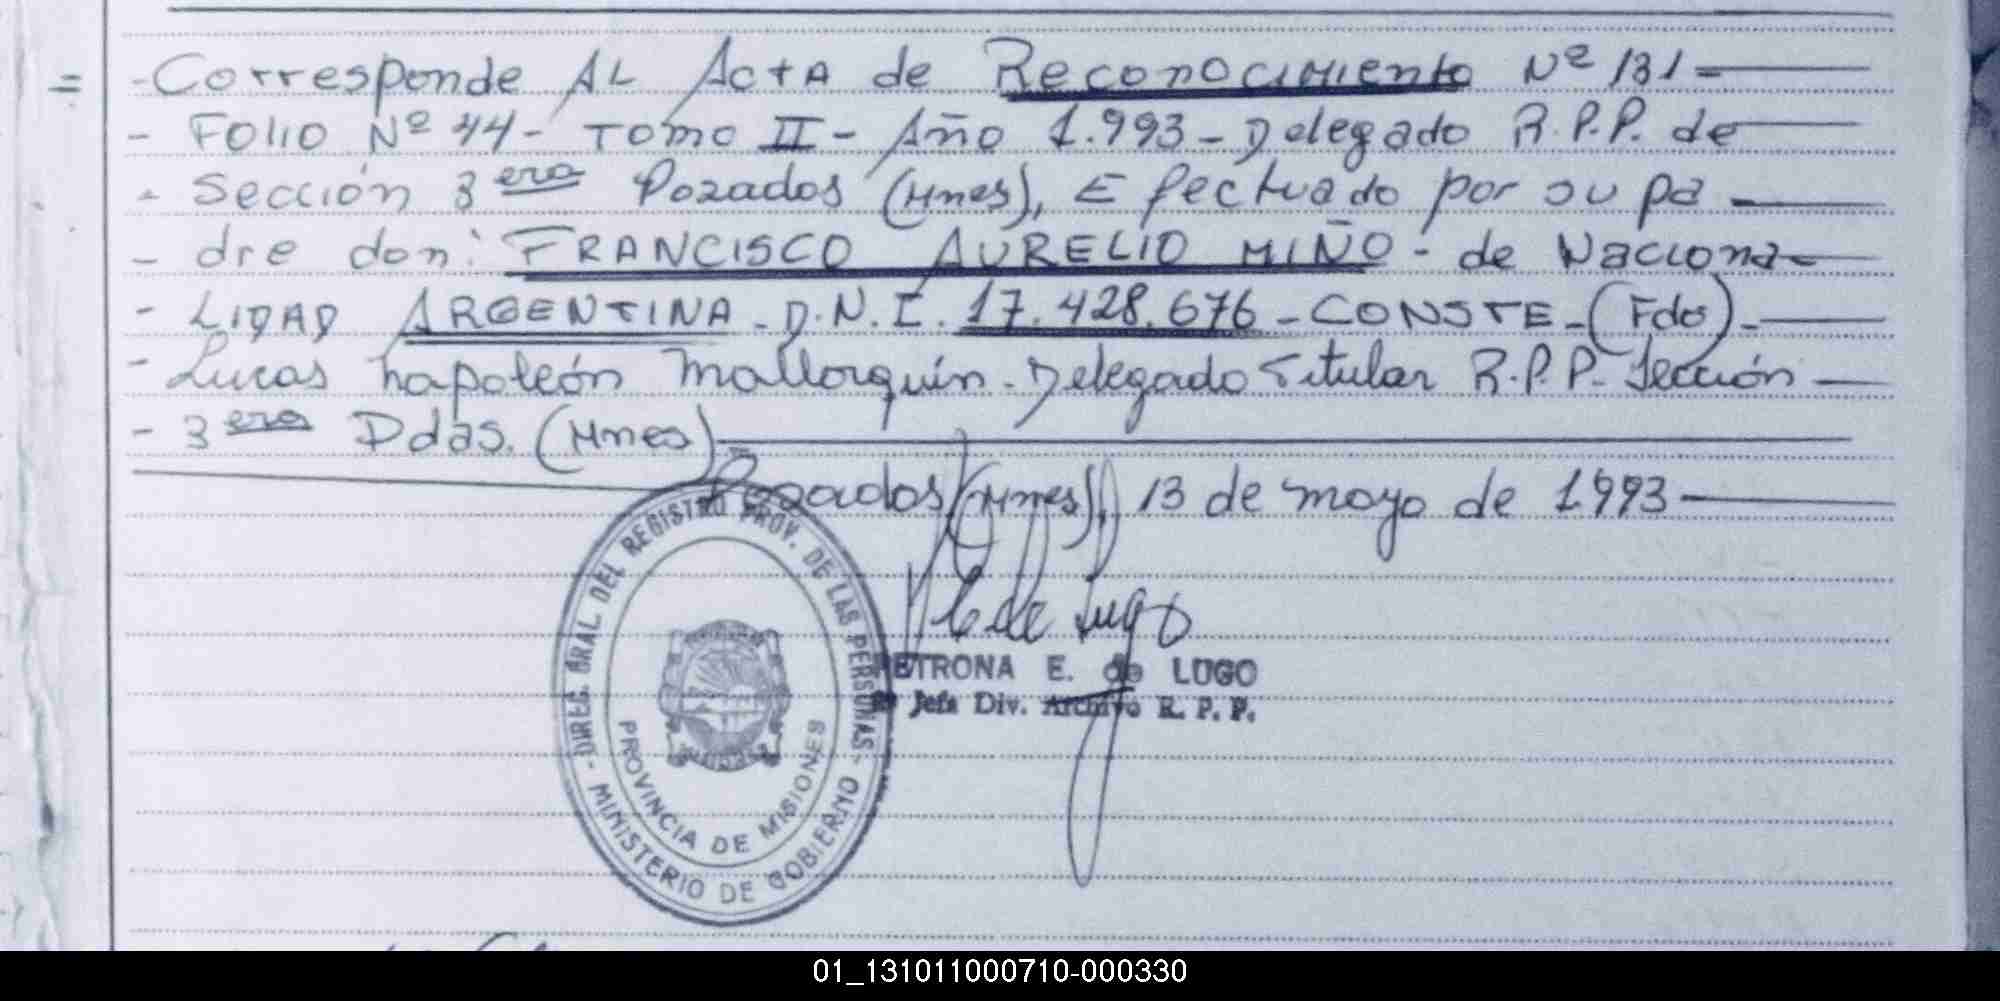 = - Corresponde AL ActA de Reconocimiento Nº 131 -
- FOLIO Nº 44 - TOMO II - Año 1.993 - Delegado R.P.P. de
- Sección 3era Pozados (Mnes), Efectuado por su pa
- dre don: FRANCISCO AURELIO MIÑO - de Naciona-
- LIDAD ARGENTINA - D.N.I. 17.428.676 - CONSTE - (Fdo) -
- Lucas Napoleón Mallorquín - Delegado Titular R.P.P. Sección
- 3era Pdas. (Mnes) -
Pozados (Mnes), 13 de mayo de 1993
DIREG. GRAL DEL REGISTRO PROV. DE LAS PERSONAS -
- MINISTERIO DE GOBIERNO
PROVINCIA DE MISIONES
de Lugo
PETRONA E. de LUGO
Jefa Div. Archivo R. P. P.
01_131011000710-000330